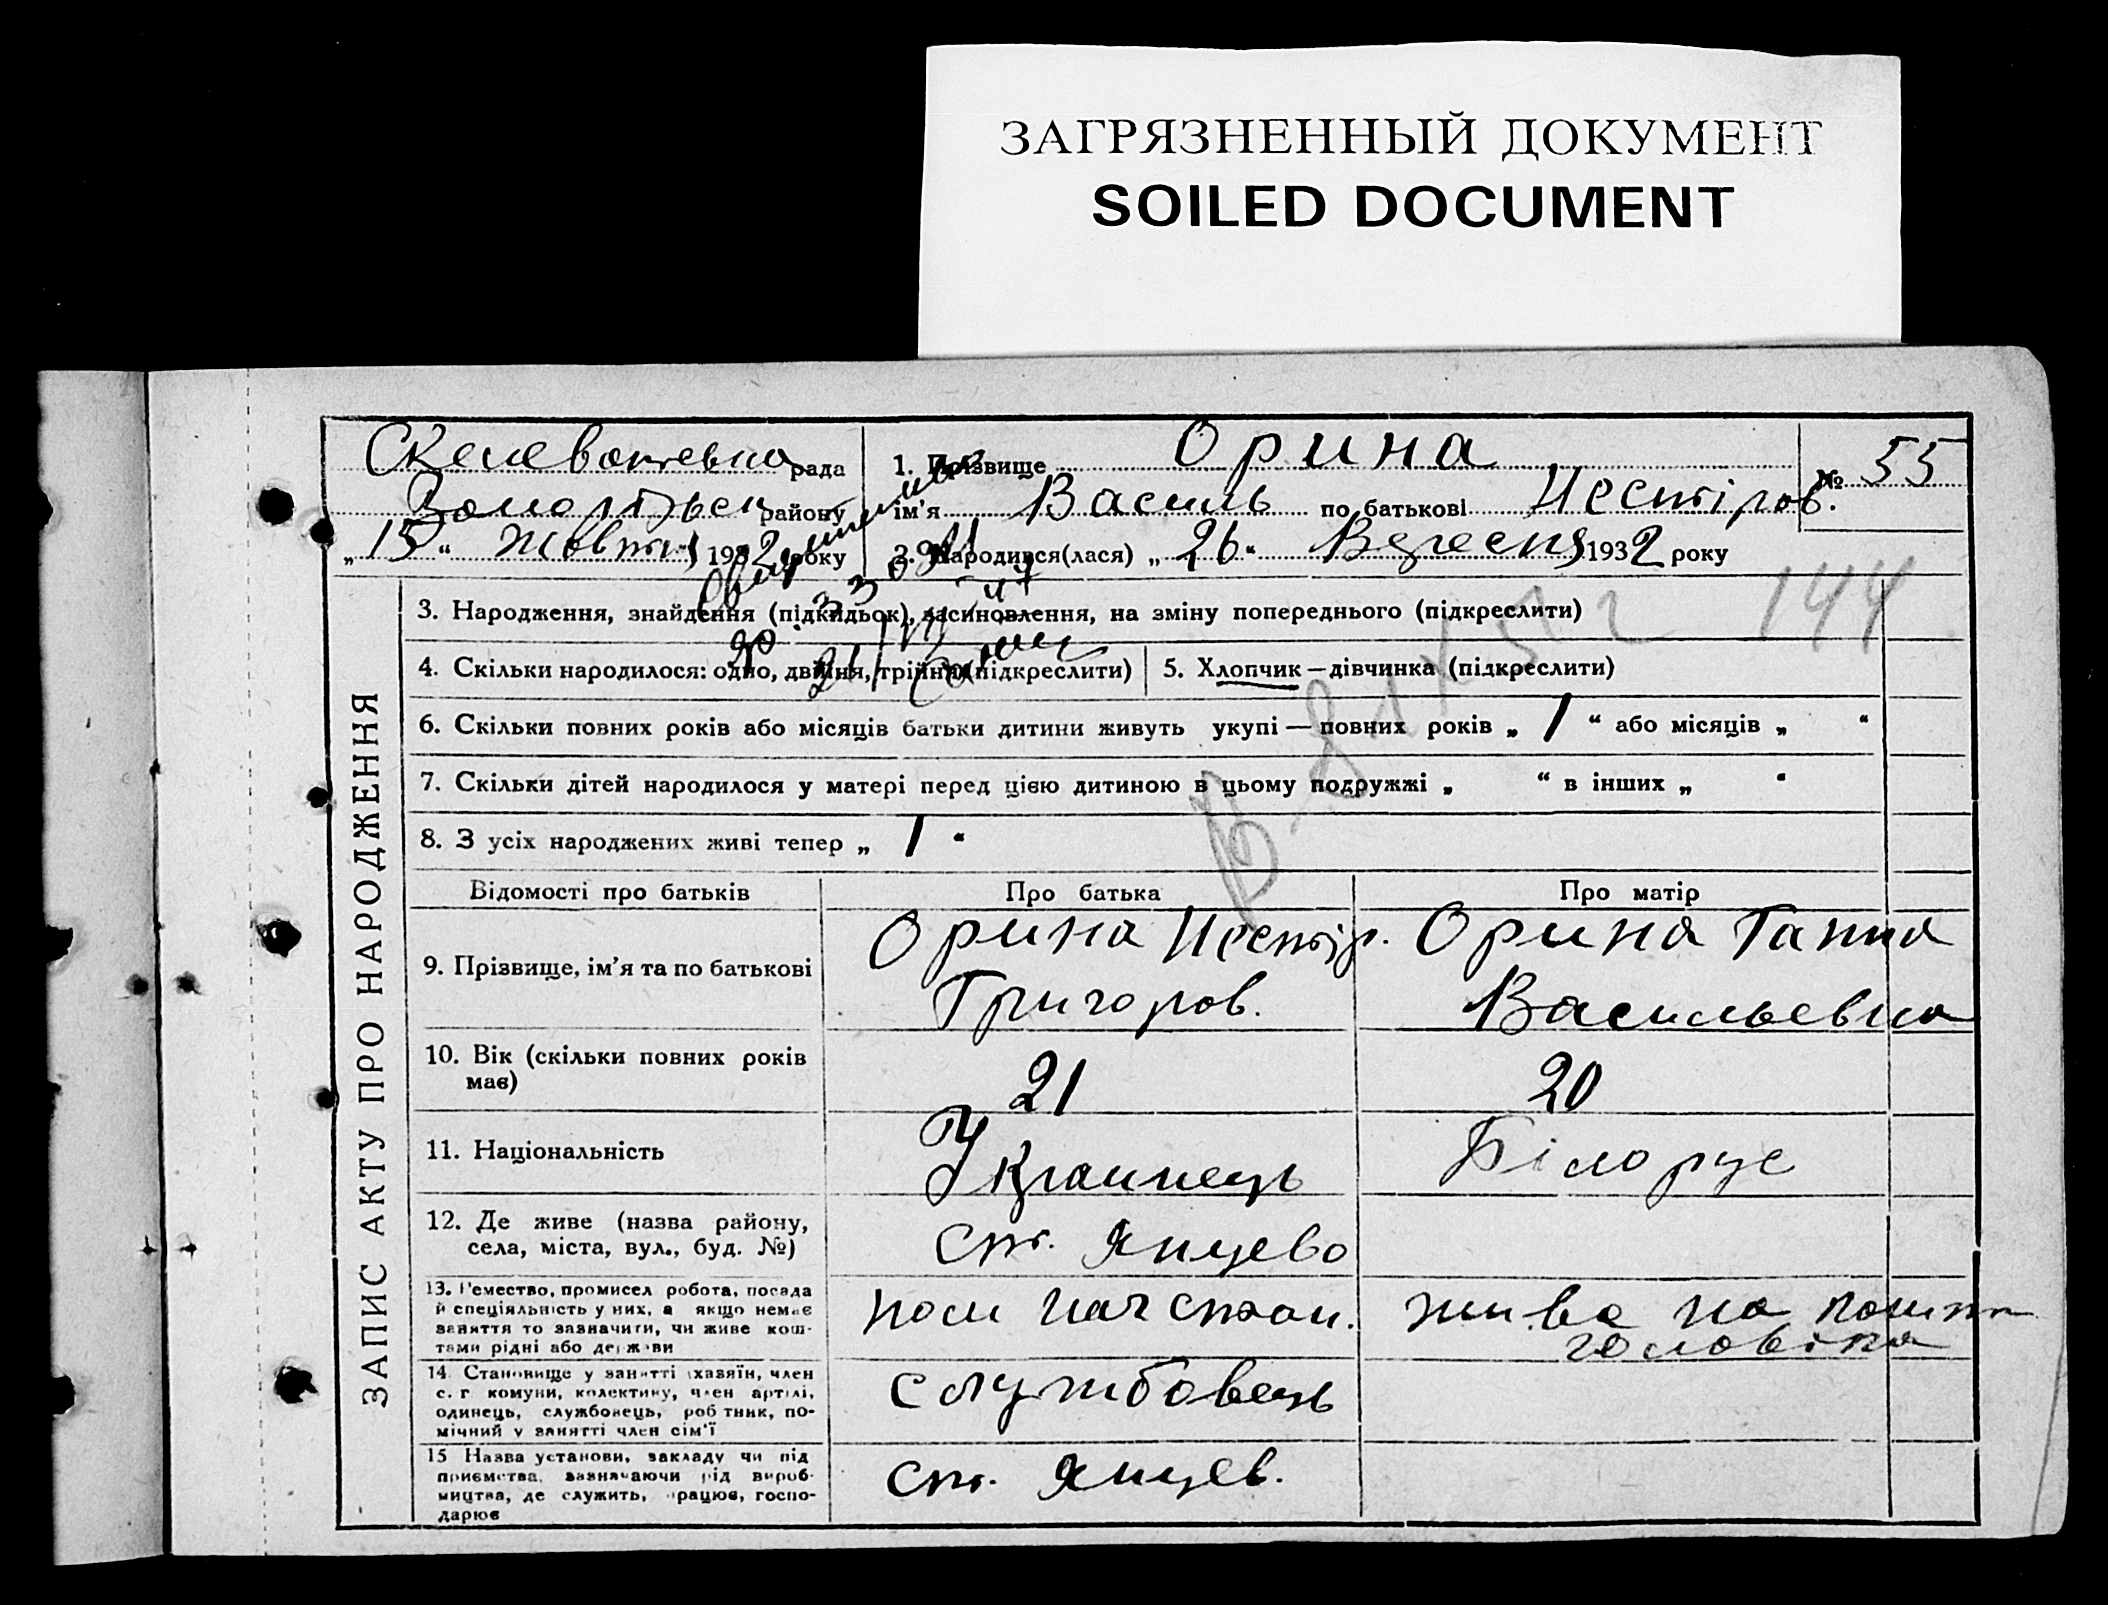 ЗАГРЯЗНЕННЫЙ ДОКУМЕНТ
SOILED DOCUMENT
рада
району
„15“ Жовтня 1932 року
1. Прізвище Орина
ім'я Василь по батькові Нестіров.
№ 55
2. Народився(лася) „26“ Вересня 1932 року
144
3. Народження, знайдення (підкидьок), засиновлення, на зміну попереднього (підкреслити)
4. Скільки народилося: одно, двійня, трійня (підкреслити)
5. Хлопчик — дівчинка (підкреслити)
6. Скільки повних років або місяців батьки дитини живуть укупі — повних років „ 1 “ або місяців „ “
7. Скільки дітей народилося у матері перед цією дитиною в цьому подружжі „ “ в інших „ “
8. З усіх народжених живі тепер „ 1 “
ЗАПИС АКТУ ПРО НАРОДЖЕННЯ
Відомості про батьків
Про батька
Про матір
9. Прізвище, ім'я та по батькові
Орина Нестір.
Григоров.
Орина Ганна
Васильевна
10. Вік (скільки повних років
має)
21
20
11. Національність
Українець
Білорус
12. Де живе (назва району,
села, міста, вул., буд. №)
ст. Янцево
13. Ремество, промисел робота, посада
й спеціяльність у них, а якщо немає
заняття то зазначити, чи живе кош-
тами рідні або держави
пом нач стан.
14. Становище у занятті (хазяїн, член
с. г. комуни, колективу, член артілі,
одинець, службовець, робітник, по-
мічний у занятті член сім'ї
службовець
15 Назва установи, закладу чи під
приємства, зазначаючи рід вироб-
ництва, де служить, працює, госпо-
дарює
ст. Янцев.